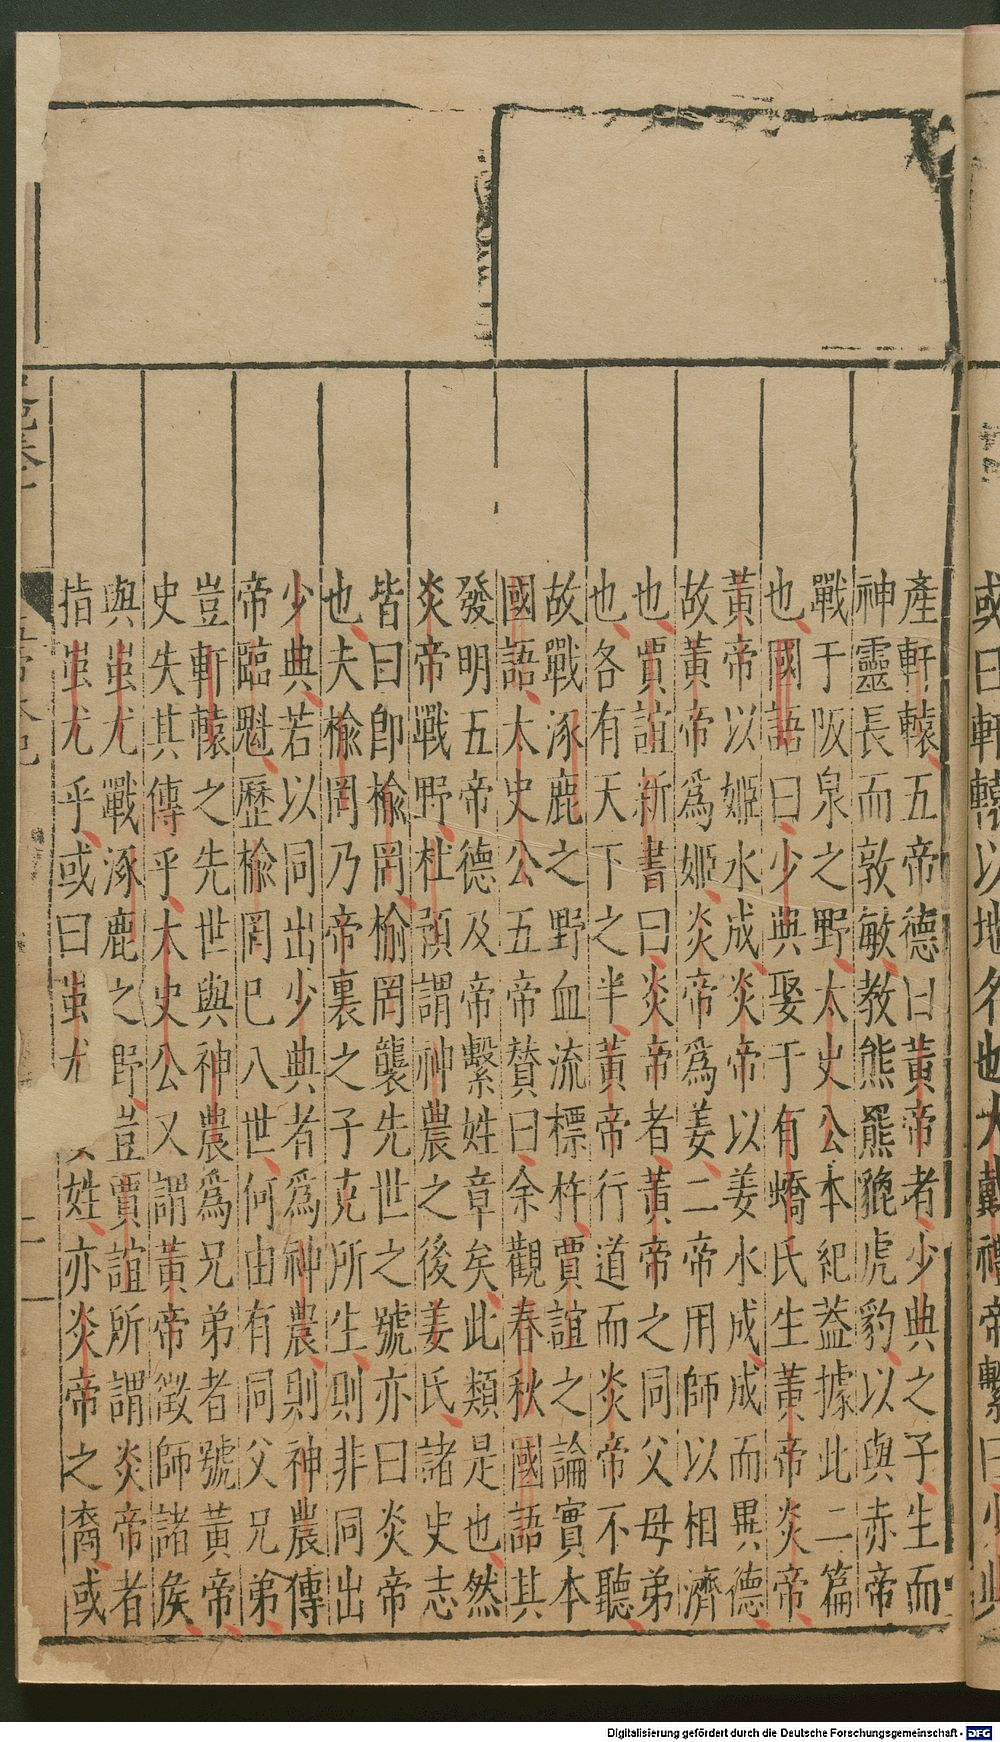 或曰軒轅以地名也大戴禮帝繫曰少典
產軒轅五帝德曰黃帝者少典之子生而
神靈長而敦敏教熊羆貔虎豹以與赤帝
戰于阪泉之野太史公本紀蓋據此二篇
也國語曰少典娶于有蟜氏生黃帝炎帝
黃帝以姬水成炎帝以姜水成成而異德
故黃帝爲姬炎帝爲姜二帝用師以相濟
也賈誼新書曰炎帝者黃帝之同父母弟
也各有天下之半黃帝行道而炎帝不聽
故戰涿鹿之野血流標杵賈誼之論實本
國語太史公五帝贊曰余觀春秋國語其
發明五帝德及帝繫姓章矣此類是也然
炎帝戰野杜預謂神農之後姜氏諸史志
皆曰卽榆罔榆罔襲先世之號亦曰炎帝
也夫榆罔乃帝裏之子克所生則非同出
少典若以同出少典者爲神農則神農傳
帝臨魁歷榆罔巳八世何由有同父兄弟
豈軒轅之先世與神農爲兄弟者號黃帝
史失其傳乎太史公又謂黃帝徵師諸矦
與蚩尤戰涿鹿之野豈賈誼所謂炎帝者
指蚩尤乎或曰蚩尤姓亦炎帝之裔或
五帝本紀
二
Digitalisierung gefördert durch die Deutsche Forschungsgemeinschaft - DFG